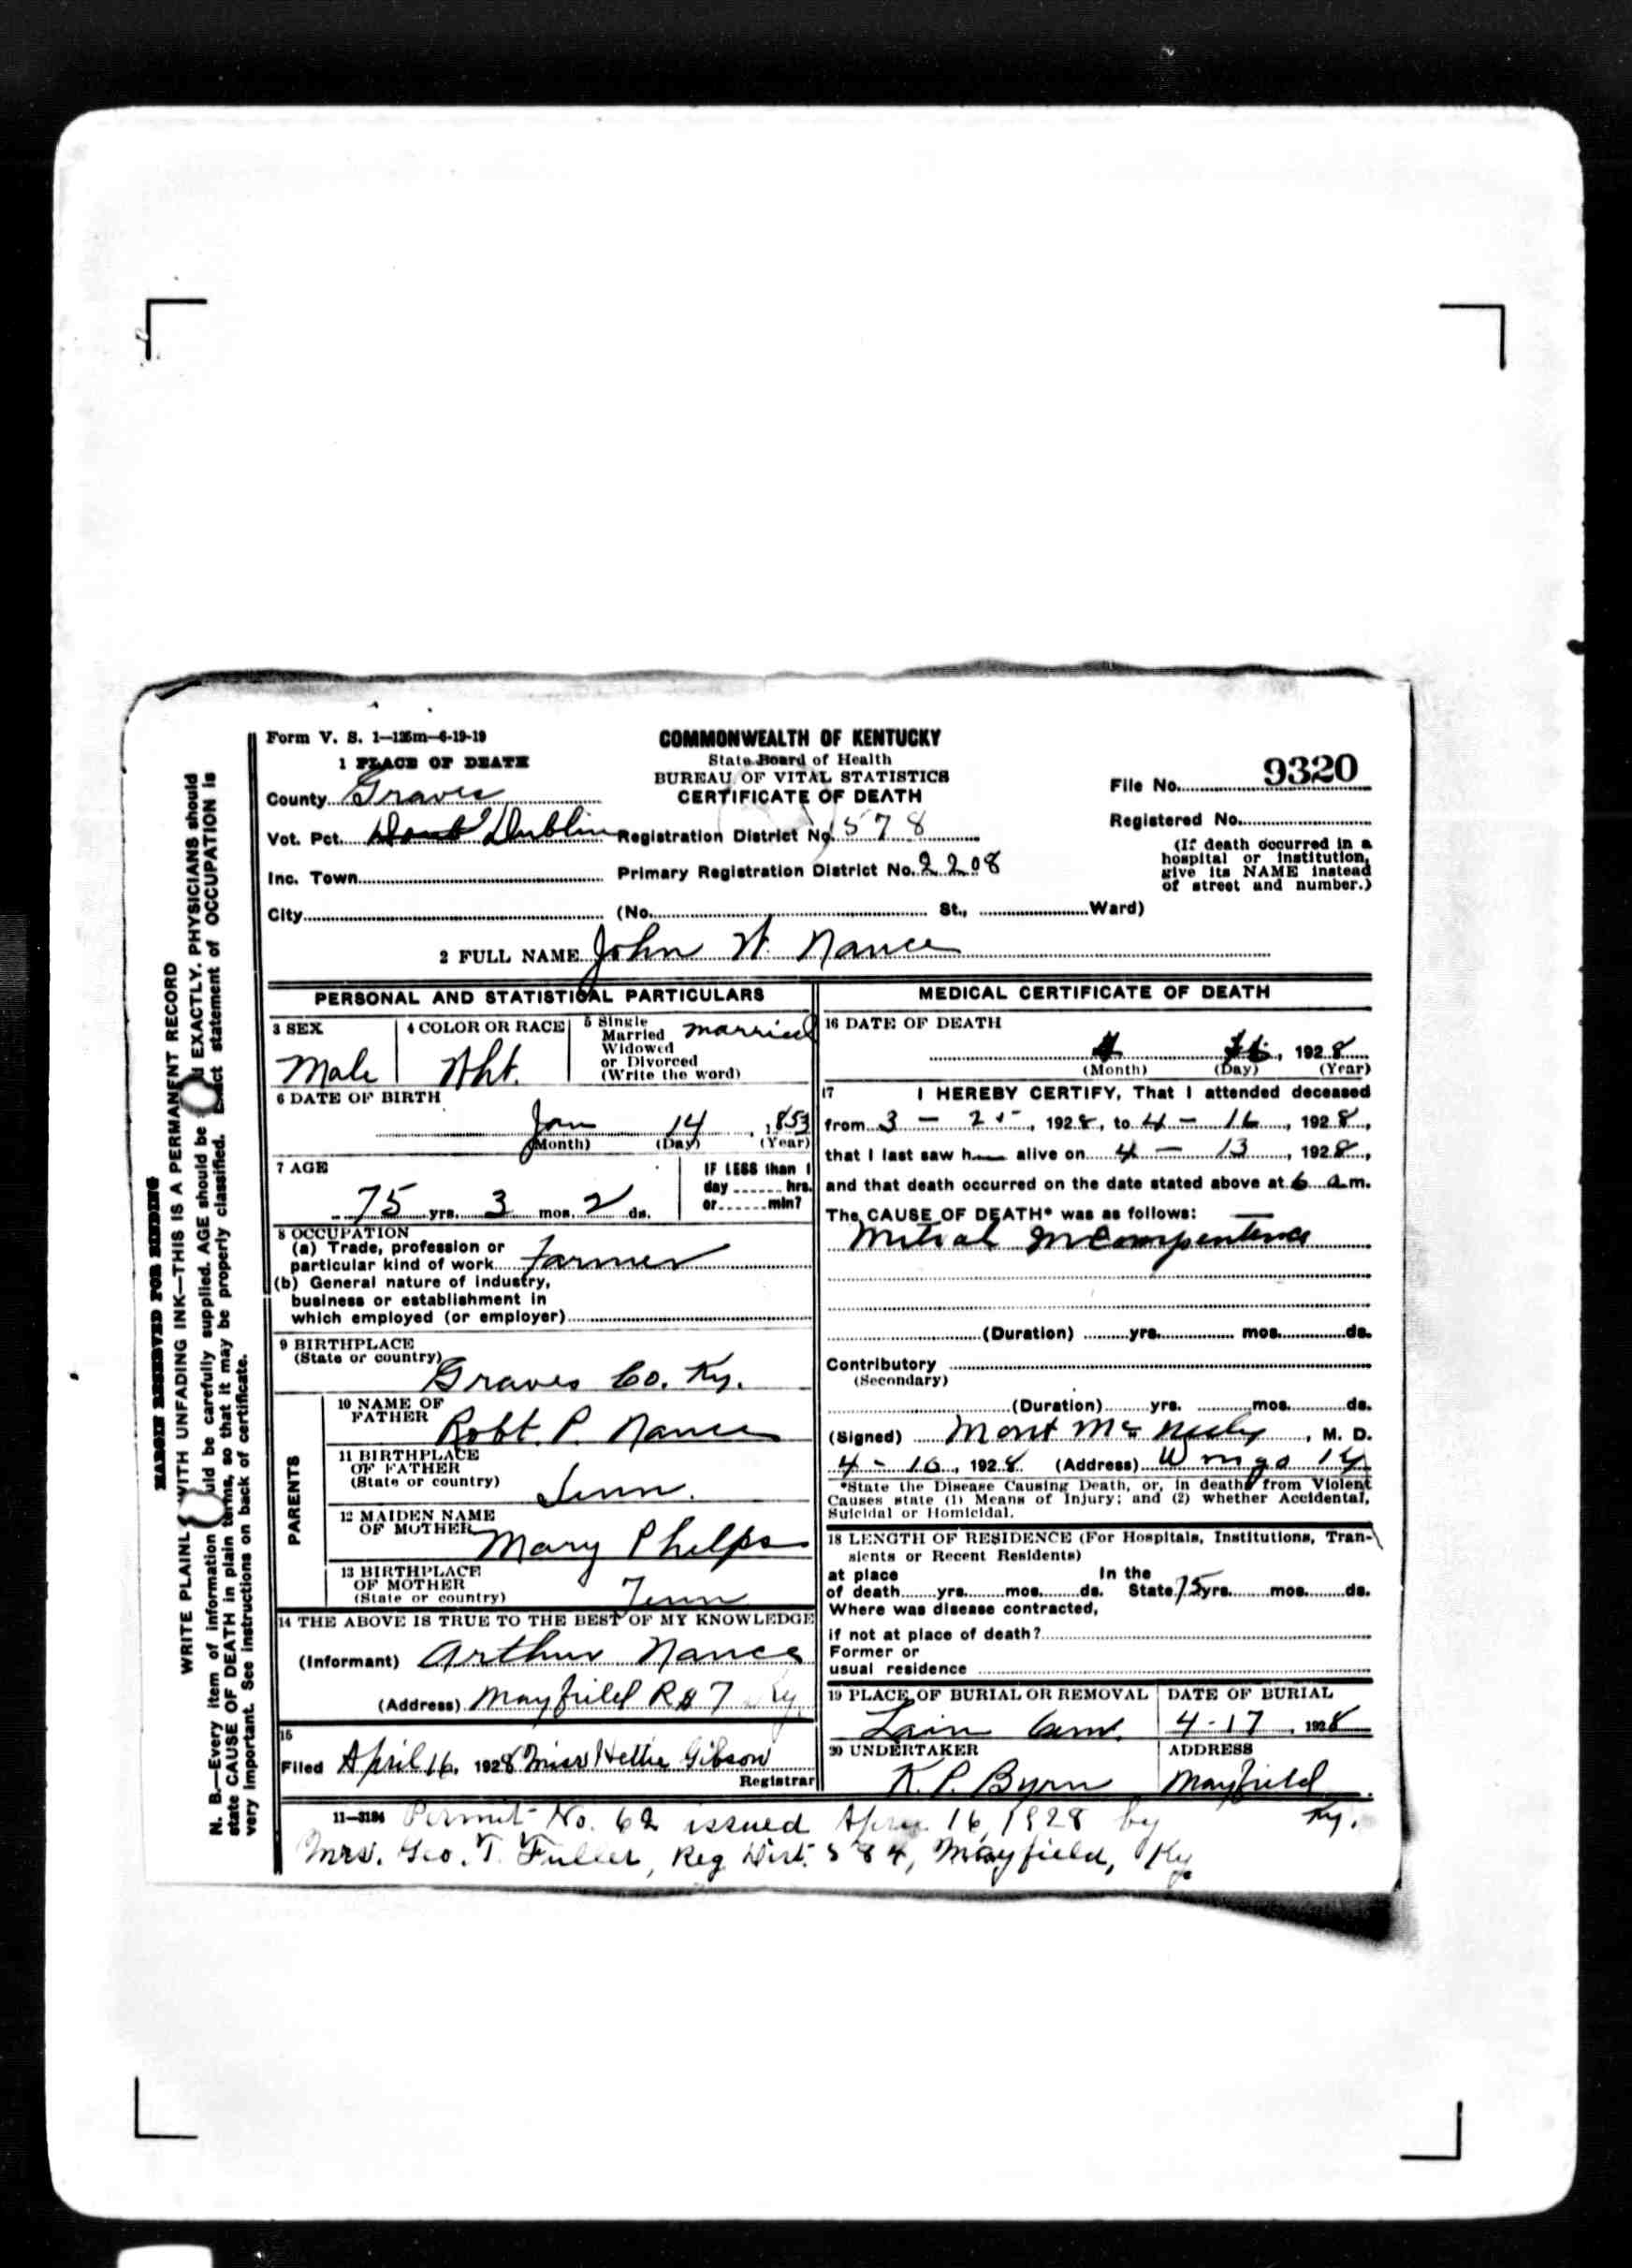 Form V. S. 1—125m—6-19-19
COMMONWEALTH OF KENTUCKY
State Board of Health
BUREAU OF VITAL STATISTICS
CERTIFICATE OF DEATH
1 PLACE OF DEATH
County Graves
Vot. Pct. Dublin
Inc. Town
City
Registration District No. 578
Primary Registration District No. 2208
(No. St., Ward)
File No. 9320
Registered No.
(If death occurred in a
hospital or institution,
give its NAME instead
of street and number.)
2 FULL NAME John W. Nance
PERSONAL AND STATISTICAL PARTICULARS
3 SEX
Male
4 COLOR OR RACE
Wht.
5 Single
Married
Widowed
or Divorced
(Write the word)
married
6 DATE OF BIRTH
Jan 14, 1853
(Month) (Day) (Year)
7 AGE
75 yrs. 3 mos. 2 ds.
IF LESS than 1
day hrs.
or min?
8 OCCUPATION
(a) Trade, profession or
particular kind of work Farmer
(b) General nature of industry,
business or establishment in
which employed (or employer)
9 BIRTHPLACE
(State or country)
Graves Co. Ky.
PARENTS
10 NAME OF
FATHER Robt. P. Nance
11 BIRTHPLACE
OF FATHER
(State or country) Tenn.
12 MAIDEN NAME
OF MOTHER Mary Phelps
13 BIRTHPLACE
OF MOTHER
(State or country) Tenn
14 THE ABOVE IS TRUE TO THE BEST OF MY KNOWLEDGE
(Informant) Arthur Nance
(Address) Mayfield R#7 Ky.
15
Filed April 16, 1928 Miss Hettie Gibson
Registrar
MEDICAL CERTIFICATE OF DEATH
16 DATE OF DEATH
4 16, 1928
(Month) (Day) (Year)
17 I HEREBY CERTIFY, That I attended deceased
from 3 - 25, 1928, to 4 - 16, 1928,
that I last saw h alive on 4 - 13, 1928,
and that death occurred on the date stated above at 6 a.m.
The CAUSE OF DEATH* was as follows:
Mitral Incompentence
(Duration) yrs. mos. ds.
Contributory
(Secondary)
(Duration) yrs. mos. ds.
(Signed) Mont McNeely, M. D.
4 - 16, 1928 (Address) Wingo Ky
*State the Disease Causing Death, or, in deaths from Violent
Causes state (1) Means of Injury; and (2) whether Accidental,
Suicidal or Homicidal.
18 LENGTH OF RESIDENCE (For Hospitals, Institutions, Tran-
sients or Recent Residents)
at place In the
of death yrs. mos. ds. State 75 yrs. mos. ds.
Where was disease contracted,
if not at place of death?
Former or
usual residence
19 PLACE OF BURIAL OR REMOVAL
Cem.
DATE OF BURIAL
4-17, 1928
20 UNDERTAKER
K. P. Byrn
ADDRESS
Mayfield
Ky.
11—3184 Permit No. 62 issued April 16, 1928 by
Mrs. Geo. T. Fuller, Reg. Dist. 584, Mayfield, Ky.
MARGIN RESERVED FOR BINDING
WRITE PLAINLY WITH UNFADING INK—THIS IS A PERMANENT RECORD
N. B.—Every item of information should be carefully supplied. AGE should be EXACTLY. PHYSICIANS should
state CAUSE OF DEATH in plain terms, so that it may be properly classified. Exact statement of OCCUPATION is
very important. See instructions on back of certificate.